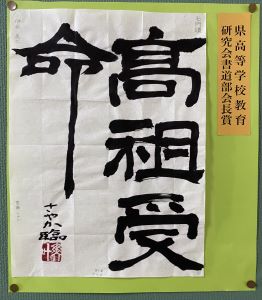 高祖受
命
さやか臨
県高等学校教育
研究会書道部会長賞